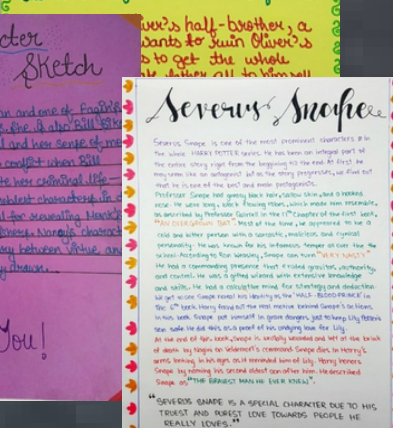 iver's half-brother, a
wants to ruin Oliver's
s to get the whole
cter
Sketch
an and one of Fagin's
she is also Bill Sikes
l and her sense of mo
conflict when Bill
te her criminal life—
characters in
for revealing Monk's
Nancy's charact
ry between virtue and
y drawn.
You!
Severus Snape
Severus Snape is one of the most prominent characters in
the whole HARRY POTTER series. He has been an integral part of
the entire story right from the beginning till the end. At first he
may seem like an antagonist but as the story progresses, we find out
that he is one of the main protagonists.
Professor Snape had greasy black hair, sallow skin, and a hooked
nose. He wore long, black flowing robes, which made him resemble,
as described by Professor Quirrell in the 17th Chapter of the first book,
"AN OVERGROWN BAT". Most of the time, he appeared to be a
cold and bitter person with a sarcastic, malicious and cynical
personality. He was known for his infamous temper all over the
school. According to Ron Weasley, Snape can turn "VERY NASTY"
He had a commanding presence that exuded gravitas, authority,
and control. He was a gifted wizard with extensive knowledge
and skills. He had a calculating mind for strategy and deduction.
We get to see Snape reveal his identity as the 'HALF-BLOOD PRINCE' in
The 6th book. Harry found out the real motive behind Snape's actions
in this book. Snape put himself in grave dangers just to keep Lily Potter's
son safe. He did this as a proof of his undying love for Lily.
At the end of the book, Snape is excitedly wounded and left at the brink
of death by Nagini on Voldemort's command. Snape dies in Harry's
arms looking in his eyes as it reminded him of Lily. Harry honors
Snape by naming his second oldest son after him. He described
Snape as "THE BRAVEST MAN HE EVER KNEW".
"SEVERUS SNAPE IS A SPECIAL CHARACTER DUE TO HIS
TRUEST AND PUREST LOVE TOWARDS PEOPLE HE
REALLY LOVES."